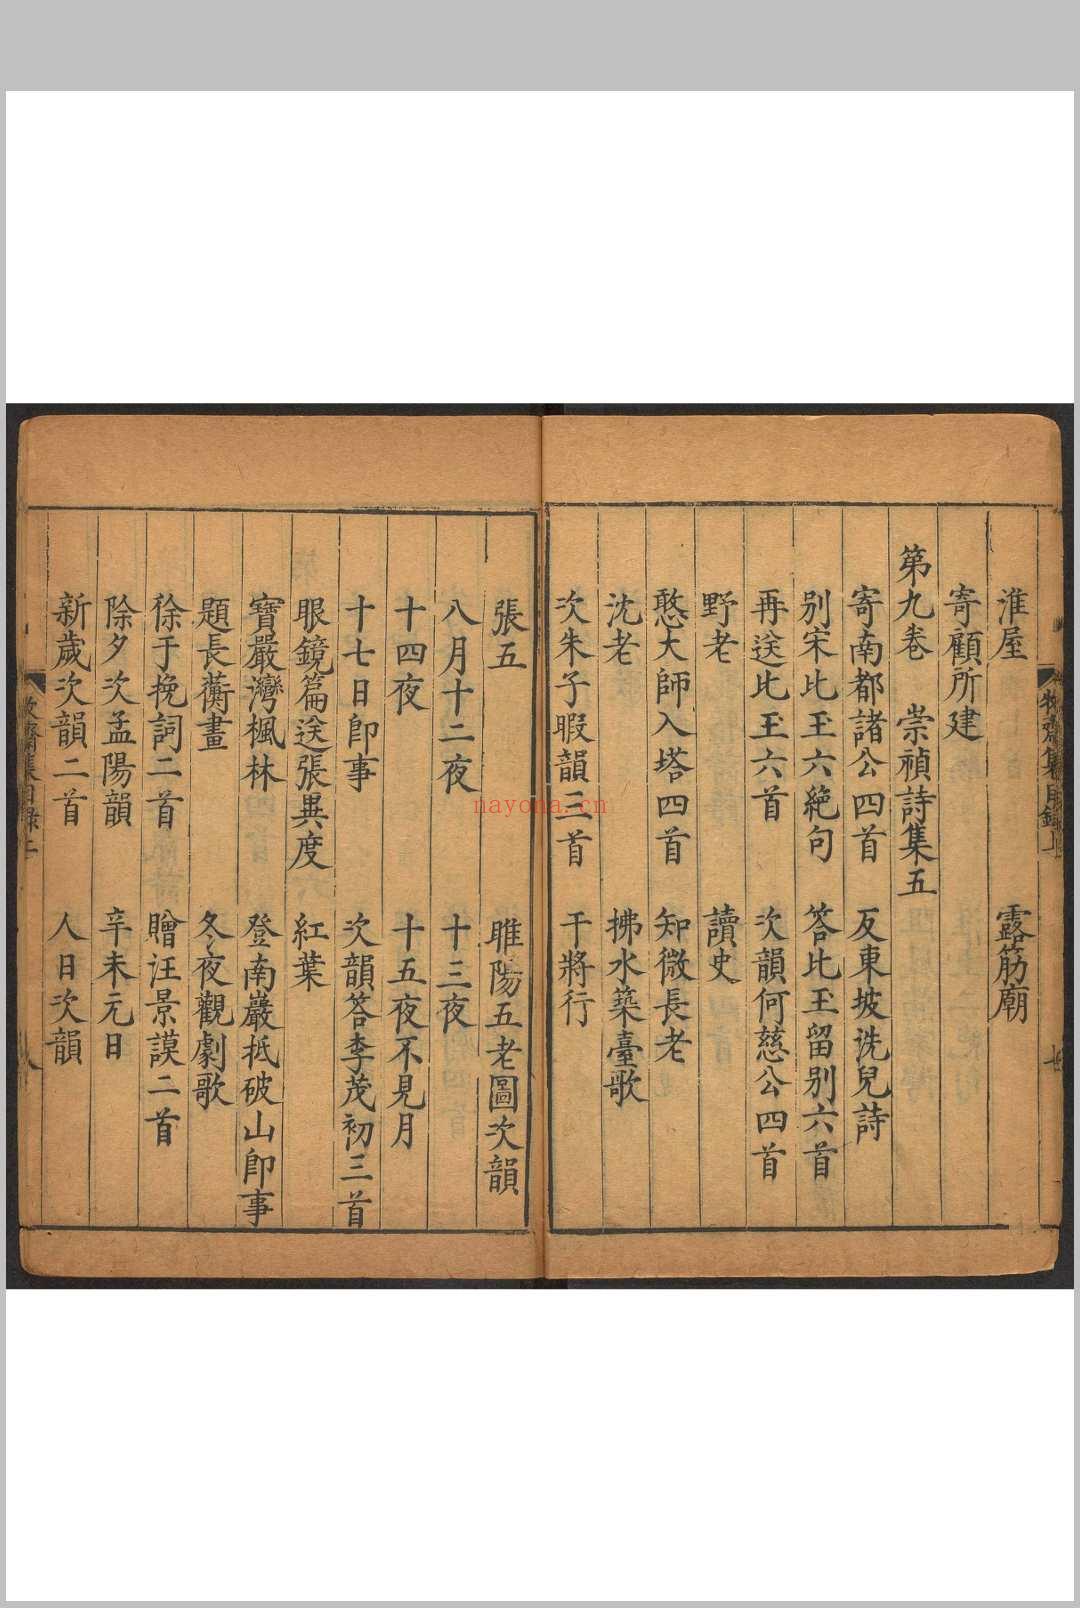 淮屋　露筋廟
寄顧所建
第九卷　崇禎詩集五
寄南都諸公四首　反東坡洗兒詩
別宋比玉六絕句　答比玉留別六首
再送比玉六首　次韻何慈公四首
野老　讀史
憨大師入塔四首　知微長老
沈老　拂水築臺歌
次朱子暇韻三首　干將行
張五　睢陽五老圖次韻
八月十二夜　十三夜
十四夜　十五夜不見月
十七日卽事　次韻答李茂初三首
眼鏡篇送張異度　紅葉
寶嚴灣楓林　登南巖抵破山卽事
題長蘅畫　冬夜觀劇歌
徐于挽詞二首　贈汪景謨二首
除夕次孟陽韻　辛未元日
新歲次韻二首　人日次韻
牧齋集目錄上
八
nayona.cn